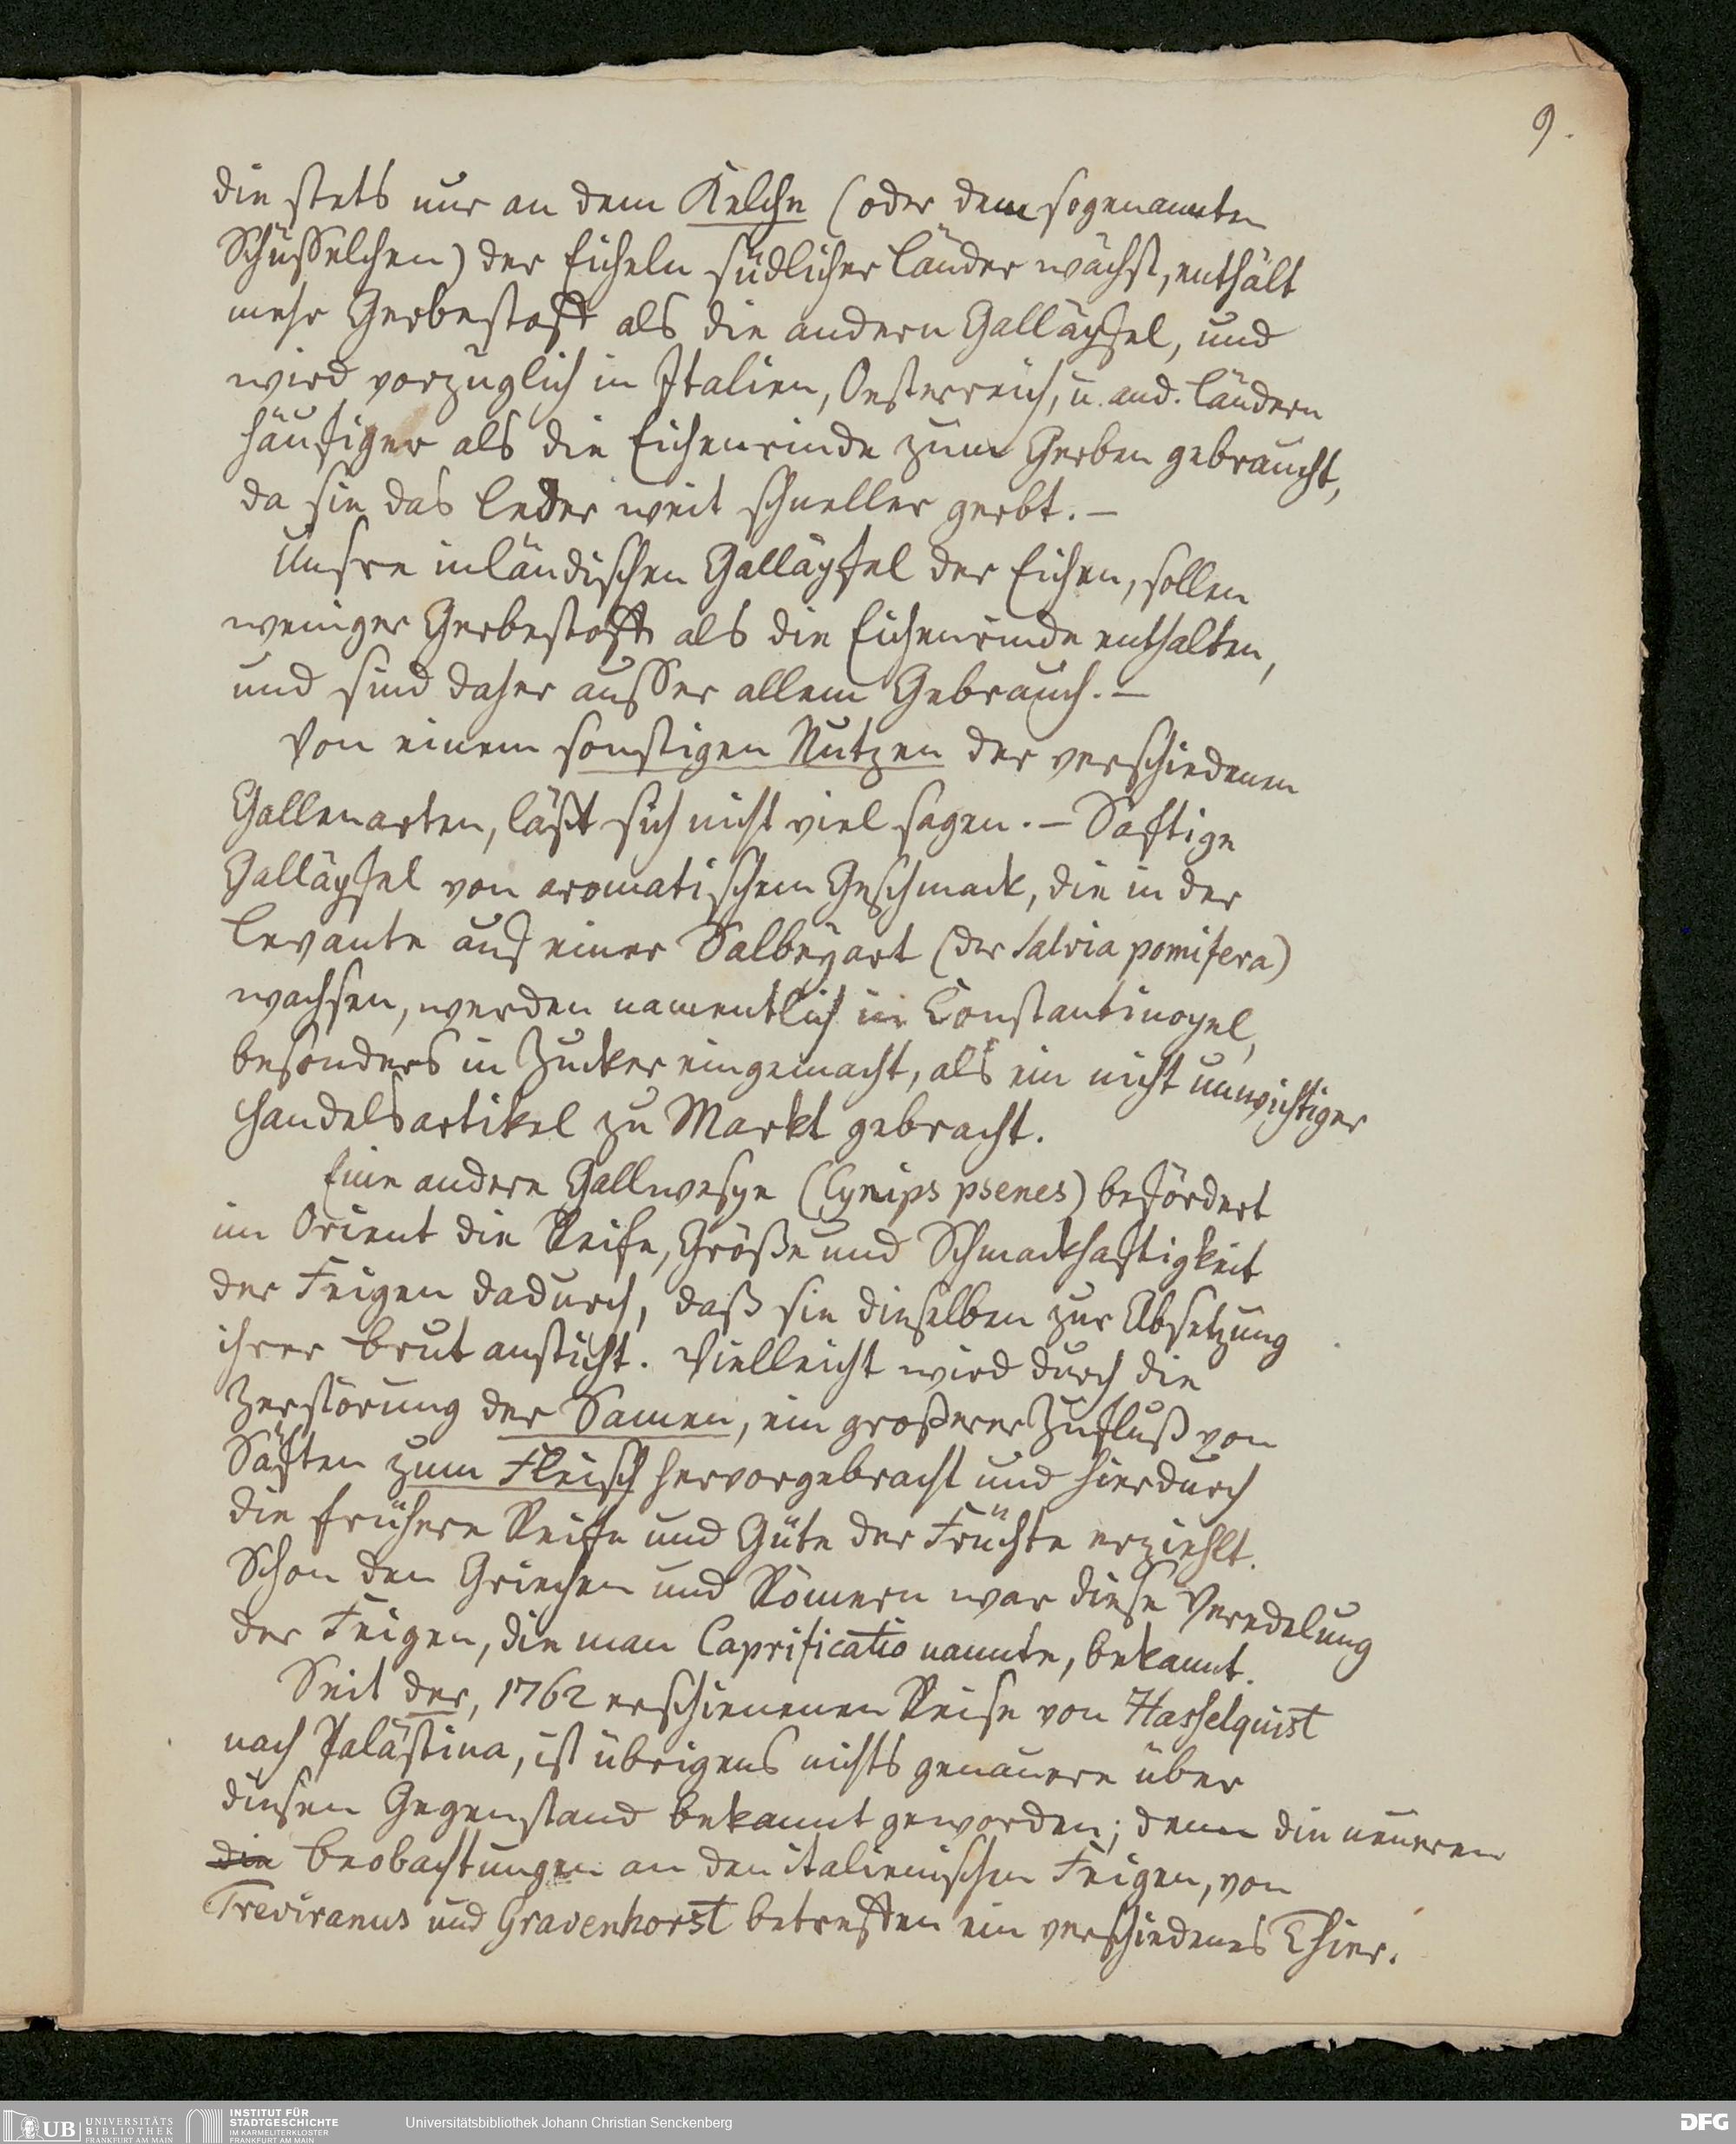 9.
die stets nur an dem Kelche (oder dem sogenannten
Schüsselchen) der Eicheln südlicher Länder wächst, enthält
mehr Gerbestoff als die andern Galläpfel, und
wird vorzüglich in Italien, Oesterreich, u. and. Ländern
häufiger als die Eichenrinde zum Gerben gebraucht,
da sie das Leder weit schneller gerbt. —
Unsre inländischen Galläpfel der Eichen, sollen
weniger Gerbestoff als die Eichenrinde enthalten,
und sind daher ausser allem Gebrauch. —
Von einem sonstigen Nutzen der verschiedenen
Gallenarten, läßt sich nicht viel sagen. — Saftige
Galläpfel von aromatischem Geschmack, die in der
Levante auf einer Salbeyart (der Salvia pomifera)
wachsen, werden namentlich in Constantinopel,
besonders in Zucker eingemacht, als ein nicht unwichtiger
Handelsartikel zu Markt gebracht.
Eine andere Gallwespe (Cynips psenes) befördert
im Orient die Reife, Größe und Schmackhaftigkeit
der Feigen dadurch, daß sie dieselben zur Absetzung
ihrer Brut ansticht. Vielleicht wird durch die
Zerstörung der Samen, ein großerer Zufluß von
Säften zum Fleisch hervorgebracht und hierdurch
die frühere Reife und Güte der Früchte erziehlt.
Schon den Griechen und Römern war diese Veredelung
der Feigen, die man Caprificatio nannte, bekannt.
Seit der, 1762 erschienenen Reise von Hasselquist
nach Palästina, ist übrigens nichts genauere über
diesen Gegenstand bekannt geworden; denn die neueren
die Beobachtungen an den italienischen Feigen, von
Treviranus und Gravenhorst betreffen ein verschiedenes Thier.
UB UNIVERSITÄTS
BIBLIOTHEK
FRANKFURT AM MAIN
INSTITUT FÜR
STADTGESCHICHTE
IM KARMELITERKLOSTER
FRANKFURT AM MAIN
Universitätsbibliothek Johann Christian Senckenberg
DFG